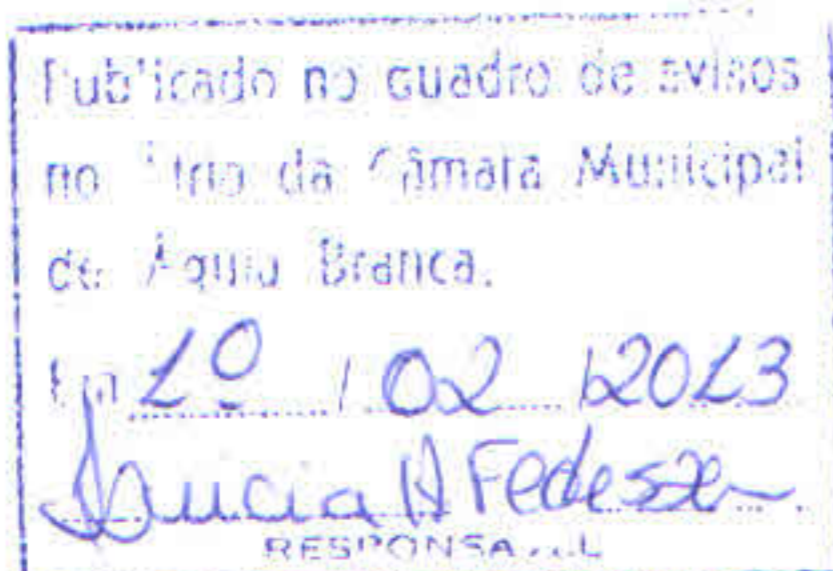 Publicado no quadro de avisos
no átrio da Câmara Municipal
de Águia Branca.
Em 1º / 02 / 2013
RESPONSAVEL